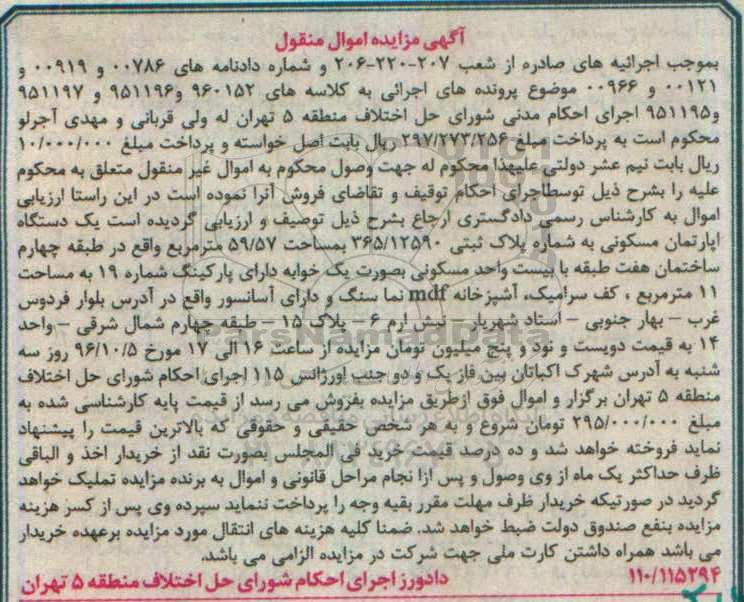 آگهی مزایده اموال منقول
بموجب اجرائیه های صادره از شعب ۲۰۷-۲۲۰-۲۰۶ و شماره دادنامه های ۰۰۷۸۶ و ۰۰۹۱۹ و
۰۰۱۲۱ و ۰۰۹۶۶ موضوع پرونده های اجرائی به کلاسه های ۹۶۰۱۵۲ و۹۵۱۱۹۶ و ۹۵۱۱۹۷
و۹۵۱۱۹۵ اجرای احکام مدنی شورای حل اختلاف منطقه ۵ تهران له ولی قربانی و مهدی آجرلو
محکوم است به پرداخت مبلغ ۲۹۷/۲۷۳/۲۵۶ ریال بابت اصل خواسته و پرداخت مبلغ ۱۰/۰۰۰/۰۰۰
ریال بابت نیم عشر دولتی علیهذا محکوم له جهت وصول محکوم به اموال غیر منقول متعلق به محکوم
علیه را بشرح ذیل توسطاجرای احکام توقیف و تقاضای فروش آنرا نموده است در این راستا ارزیابی
اموال به کارشناس رسمی دادگستری ارجاع بشرح ذیل توصیف و ارزیابی گردیده است یک دستگاه
اپارتمان مسکونی به شماره پلاک ثبتی ۳۶۵/۱۲۵۹۰ بمساحت ۵۹/۵۷ مترمربع واقع در طبقه چهارم
ساختمان هفت طبقه با بیست واحد مسکونی بصورت یک خوابه دارای پارکینگ شماره ۱۹ به مساحت
۱۱ مترمربع ، کف سرامیک، آشپزخانه mdf نما سنگ و دارای آسانسور واقع در آدرس بلوار فردوس
غرب – بهار جنوبی – استاد شهریار – نبش ارم ۶ – پلاک ۱۵ – طبقه چهارم شمال شرقی – واحد
۱۴ به قیمت دویست و نود و پنج میلیون تومان مزایده از ساعت ۱۶ الی ۱۷ مورخ ۹۶/۱۰/۵ روز سه
شنبه به آدرس شهرک اکباتان بین فاز یک و دو جنب اورژانس ۱۱۵ اجرای احکام شورای حل اختلاف
منطقه ۵ تهران برگزار و اموال فوق ازطریق مزایده بفروش می رسد از قیمت پایه کارشناسی شده به
مبلغ ۲۹۵/۰۰۰/۰۰۰ تومان شروع و به هر شخص حقیقی و حقوقی که بالاترین قیمت را پیشنهاد
نماید فروخته خواهد شد و ده درصد قیمت خرید فی المجلس بصورت نقد از خریدار اخذ و الباقی
ظرف حداکثر یک ماه از وی وصول و پس ازا نجام مراحل قانونی و اموال به برنده مزایده تملیک خواهد
گردید در صورتیکه خریدار ظرف مهلت مقرر بقیه وجه را پرداخت ننماید سپرده وی پس از کسر هزینه
مزایده بنفع صندوق دولت ضبط خواهد شد. ضمنا کلیه هزینه های انتقال مورد مزایده برعهده خریدار
می باشد همراه داشتن کارت ملی جهت شرکت در مزایده الزامی می باشد.
۱۱۰/۱۱۵۲۹۴ دادورز اجرای احکام شورای حل اختلاف منطقه ۵ تهران
ParsNamadData